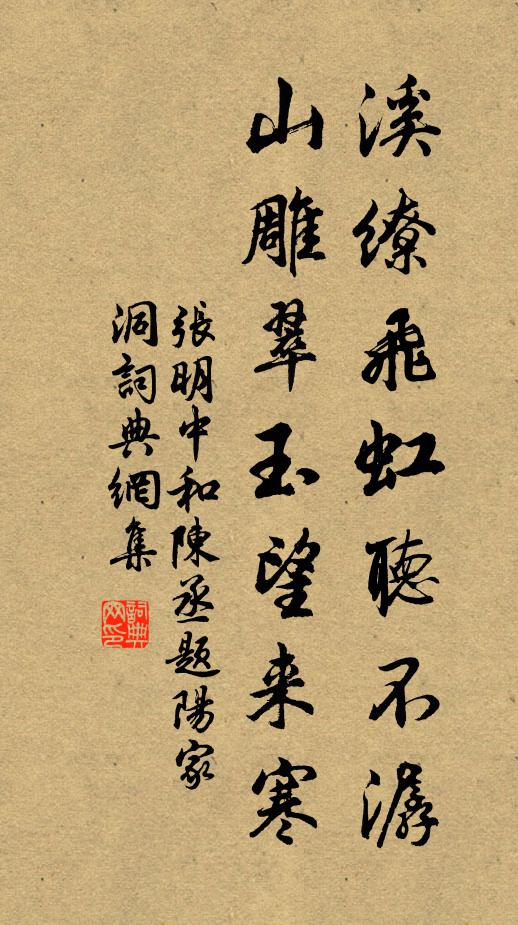 溪繚飛虹聽不潺
山雕翠玉望来寒
張明中和陳丞題陽家
洞詞典網集
詞典
网印